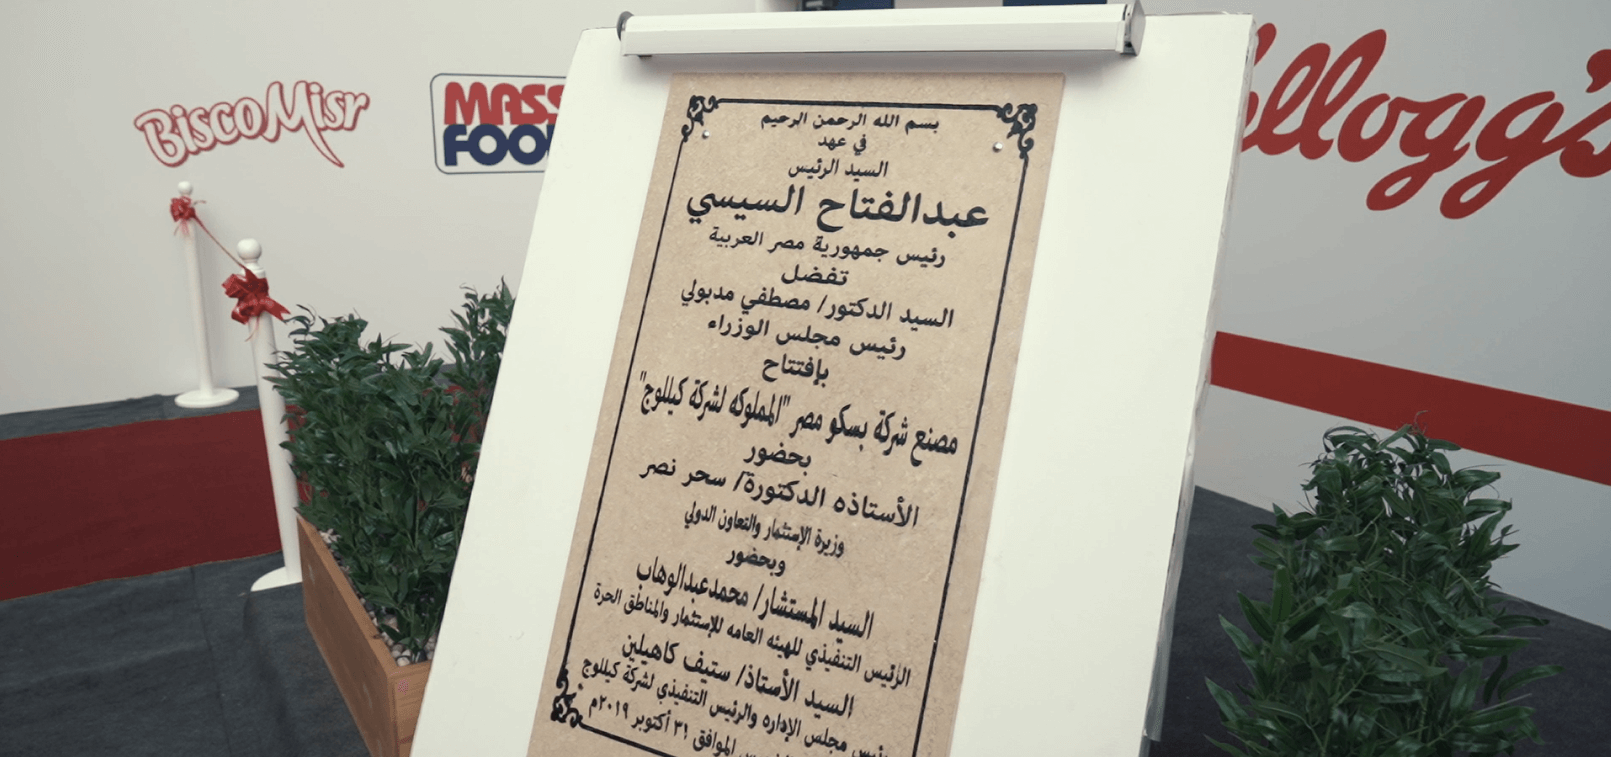 BiscoMisr
MASS
FOO
Kellogg's
بسم الله الرحمن الرحيم
في عهد
السيد الرئيس
عبدالفتاح السيسي
رئيس جمهورية مصر العربية
تفضل
السيد الدكتور/ مصطفي مدبولي
رئيس مجلس الوزراء
بإفتتاح
مصنع شركة بسكو مصر "المملوكه لشركة كيللوج"
بحضور
الأستاذه الدكتورة/ سحر نصر
وزيرة الإستثمار والتعاون الدولي
وبحضور
السيد المستشار/ محمدعبدالوهاب
الرئيس التنفيذي للهيئه العامه للإستثمار والمناطق الحرة
السيد الأستاذ/ ستيف كاهيلين
رئيس مجلس الإداره والرئيس التنفيذي لشركة كيللوج
الموافق ٣١ أكتوبر ٢٠١٩م